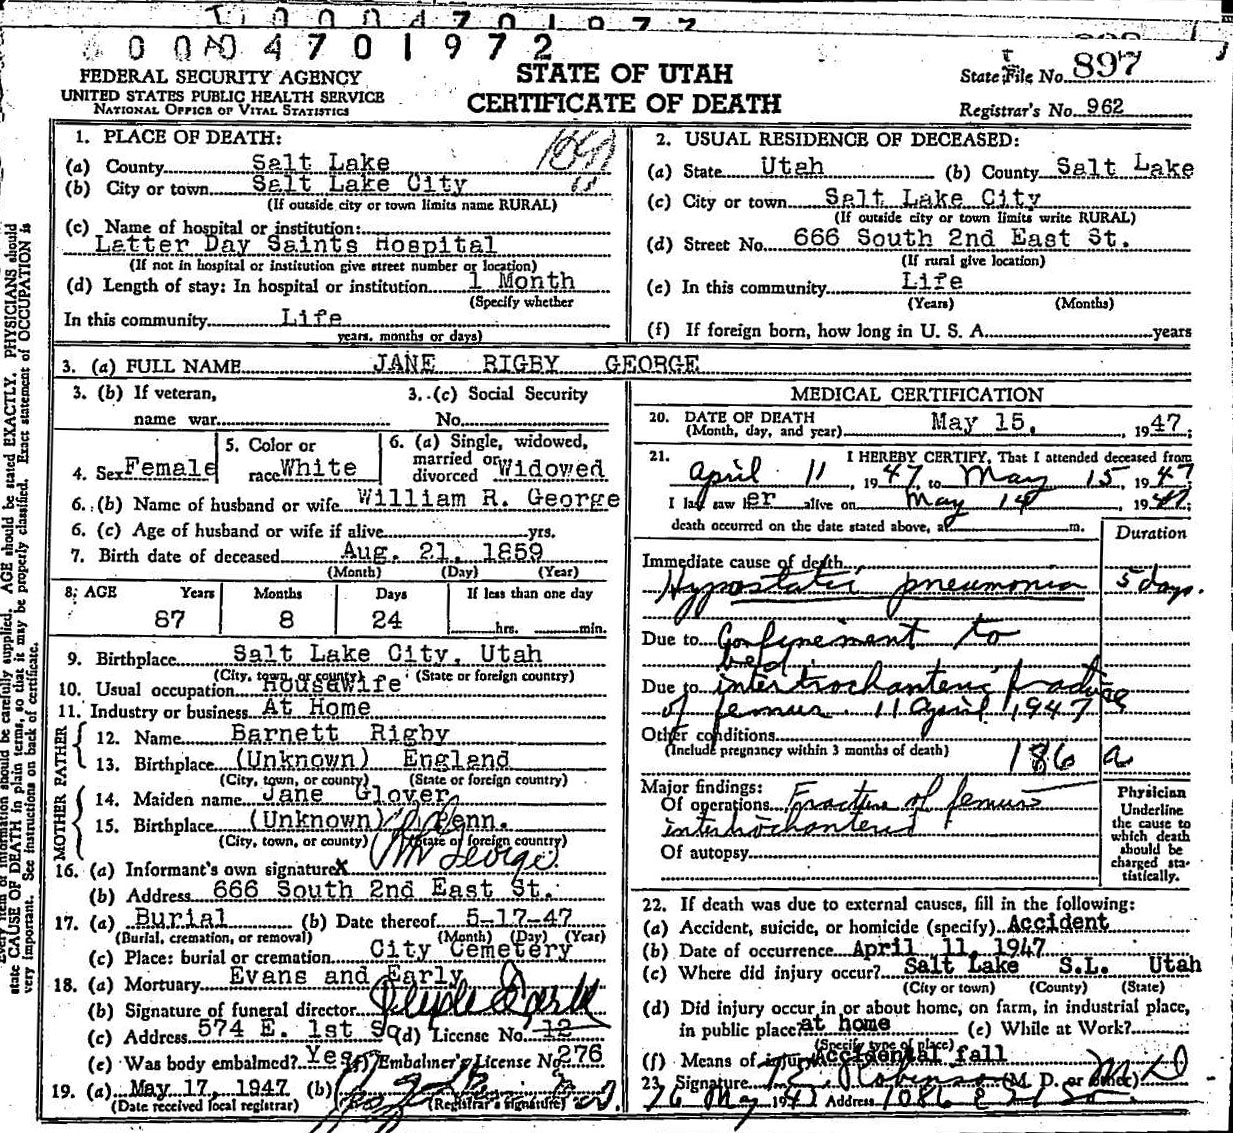 0004701972
FEDERAL SECURITY AGENCY
UNITED STATES PUBLIC HEALTH SERVICE
NATIONAL OFFICE OF VITAL STATISTICS
STATE OF UTAH
CERTIFICATE OF DEATH
State File No. 897
Registrar's No. 962
1. PLACE OF DEATH:
(a) County Salt Lake
(b) City or town Salt Lake City
(If outside city or town limits name RURAL)
(c) Name of hospital or institution:
Latter Day Saints Hospital
(If not in hospital or institution give street number or location)
(d) Length of stay: In hospital or institution 1 Month
(Specify whether
In this community Life
years, months or days)
2. USUAL RESIDENCE OF DECEASED:
(a) State Utah (b) County Salt Lake
(c) City or town Salt Lake City
(If outside city or town limits write RURAL)
(d) Street No. 666 South 2nd East St.
(If rural give location)
(e) In this community Life
(Years) (Months)
(f) If foreign born, how long in U. S. A. years
3. (a) FULL NAME JANE RIGBY GEORGE
3. (b) If veteran, name war
3. (c) Social Security No.
4. Sex Female
5. Color or race White
6. (a) Single, widowed, married or divorced Widowed
6. (b) Name of husband or wife William R. George
6. (c) Age of husband or wife if alive yrs.
7. Birth date of deceased Aug. 21, 1859
(Month) (Day) (Year)
8. AGE Years Months Days If less than one day
87 8 24 hrs. min.
9. Birthplace Salt Lake City, Utah
(City, town, or county) (State or foreign country)
10. Usual occupation Housewife
11. Industry or business At Home
FATHER
12. Name Barnett Rigby
13. Birthplace (Unknown) England
(City, town, or county) (State or foreign country)
MOTHER
14. Maiden name Jane Glover
15. Birthplace (Unknown) Penn.
(City, town, or county) (State or foreign country)
16. (a) Informant's own signature X George
(b) Address 666 South 2nd East St.
17. (a) Burial (b) Date thereof 5-17-47
(Burial, cremation, or removal) (Month) (Day) (Year)
(c) Place: burial or cremation City Cemetery
18. (a) Mortuary Evans and Early
(b) Signature of funeral director
(c) Address 574 E. 1st So. (d) License No. 12
(e) Was body embalmed? Yes (f) Embalmer's License No. 276
19. (a) May 17, 1947 (b)
(Date received local registrar) (Registrar's signature)
MEDICAL CERTIFICATION
20. DATE OF DEATH
(Month, day, and year) May 15, 1947;
21. I HEREBY CERTIFY, That I attended deceased from
April 11, 1947, to May 15, 1947
I last saw her alive on May 14, 1947;
death occurred on the date stated above, at m.
Duration
Immediate cause of death
Hypostatic pneumonia 5 days.
Due to Confinement to
bed.
Due to intertrochanteric fracture
of femur. 11 April 1947
Other conditions
(Include pregnancy within 3 months of death)
186 a
Major findings:
Of operations Fracture of femur
Of autopsy
Physician
Underline
the cause to
which death
should be
charged sta-
tistically.
22. If death was due to external causes, fill in the following:
(a) Accident, suicide, or homicide (specify) Accident
(b) Date of occurrence April 11, 1947
(c) Where did injury occur? Salt Lake S.L. Utah
(City or town) (County) (State)
(d) Did injury occur in or about home, on farm, in industrial place,
in public place? at home (e) While at Work?
(Specify type of place)
(f) Means of injury Accidental fall
23. Signature Robinson (M. D. or other) MD
Address
state CAUSE OF DEATH in plain terms, so that it may be properly classified. Exact statement of OCCUPATION is
very important. See instructions on back of certificate.